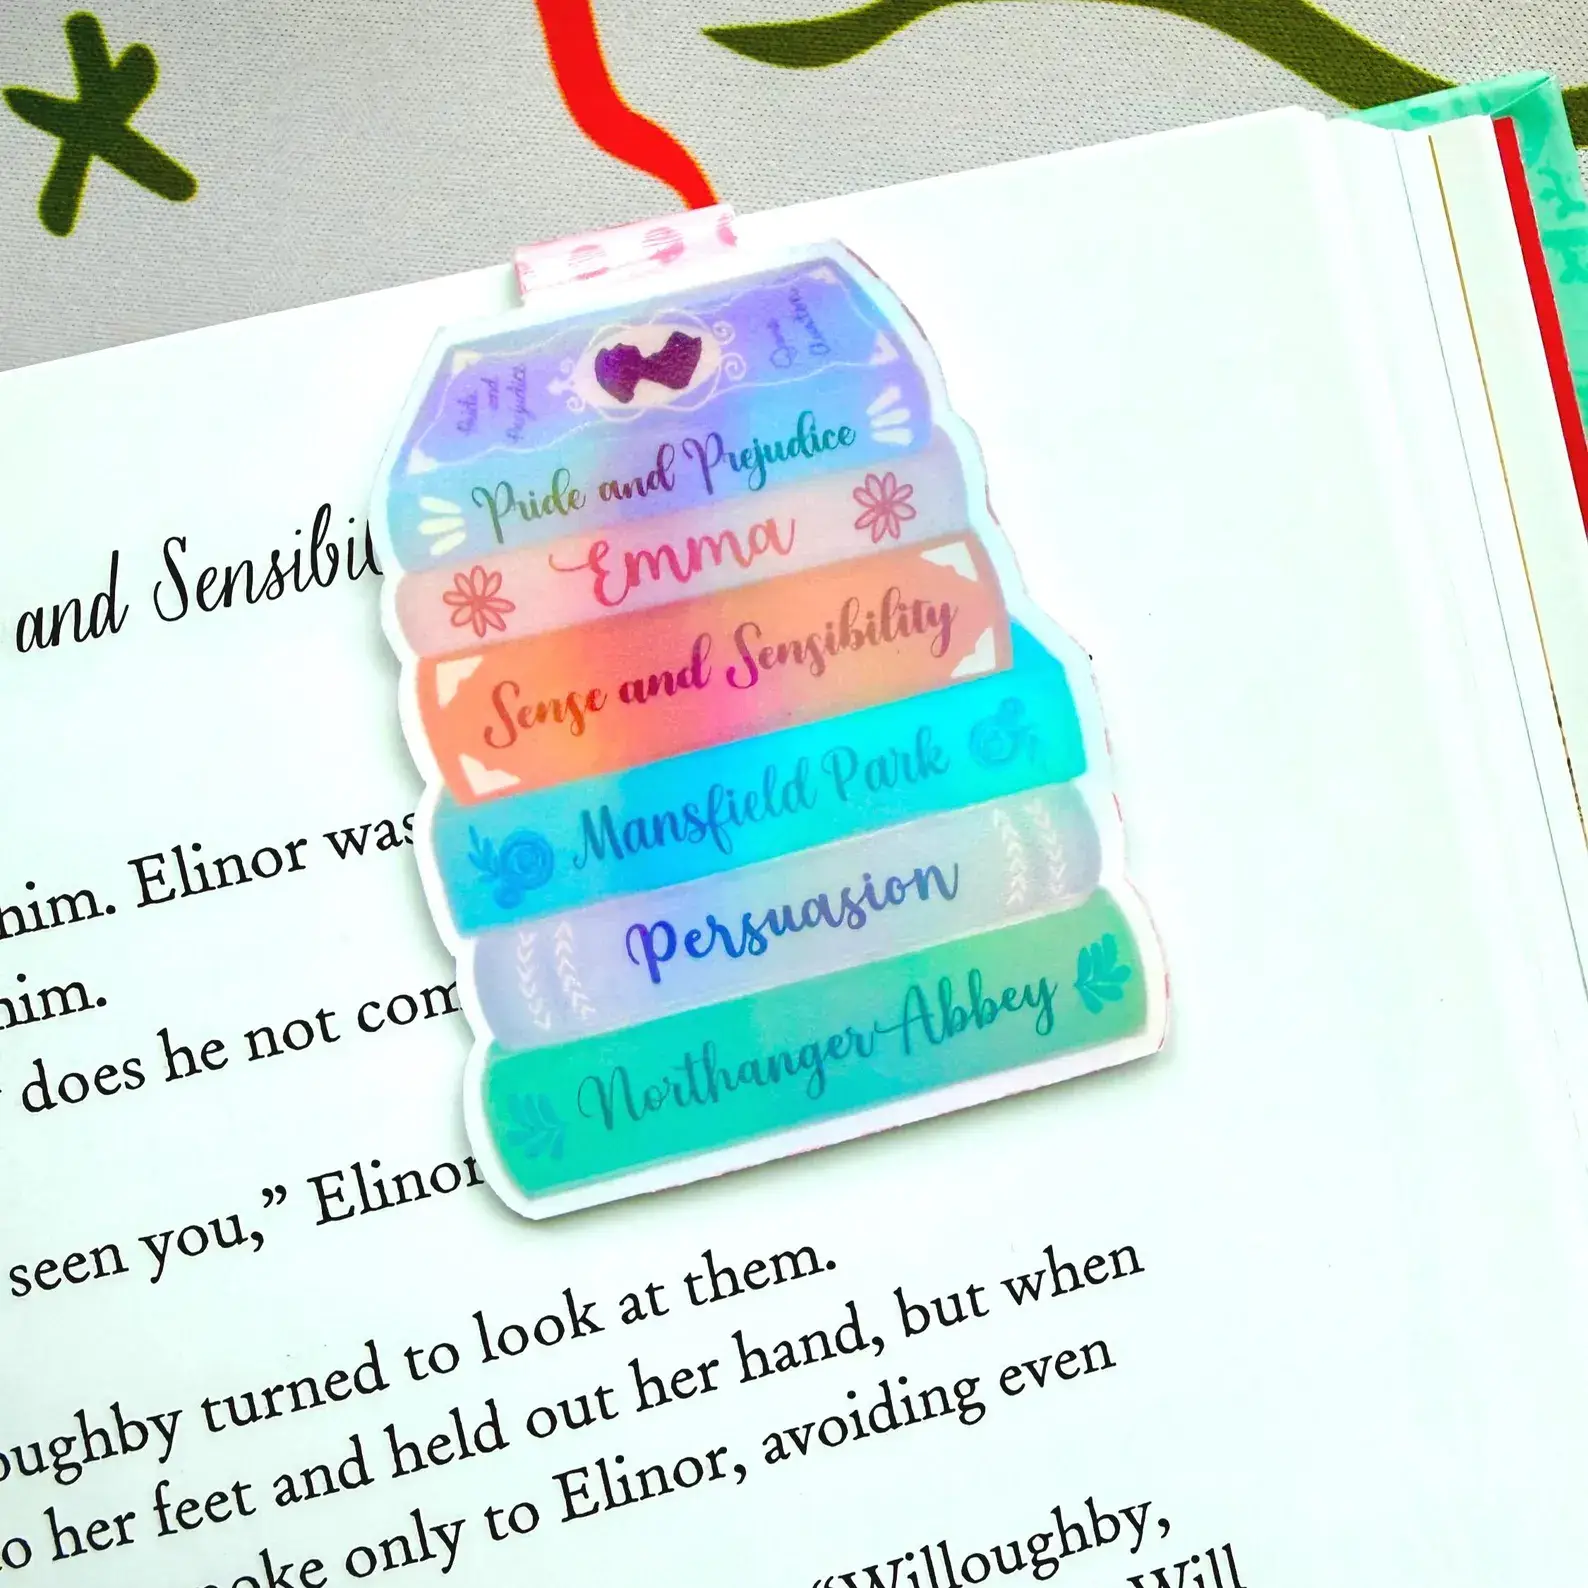 and Sensibil
Pride
and
Prejudice
Jane
Austen
Pride and Prejudice
Emma
Sense and Sensibility
Mansfield Park
Persuasion
Northanger Abbey
him. Elinor was
him.
does he not com
seen you,” Elinor
oughby turned to look at them.
o her feet and held out her hand, but when
oke only to Elinor, avoiding even
“Willoughby,
Will